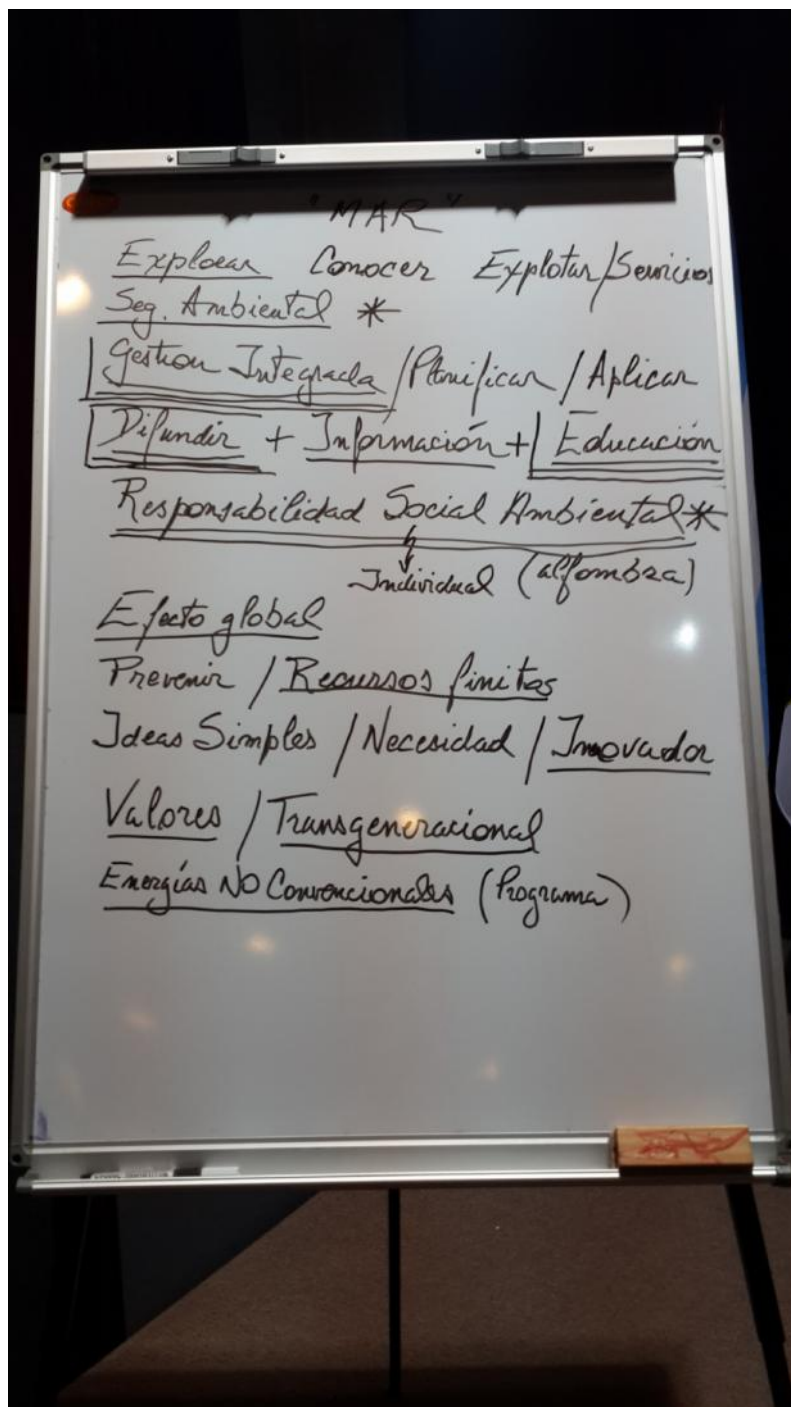 "MAR"
Explorar Conocer Explotar/Servicios
Seg. Ambiental *
Gestion Integrada / Planificar / Aplicar
Difundir + Información + Educación
Responsabilidad Social Ambiental *
Individual (alfombra)
Efecto global
Prevenir / Recursos finitos
Ideas Simples / Necesidad / Inovador
Valores / Transgeneracional
Energías NO Convencionales (Programa)